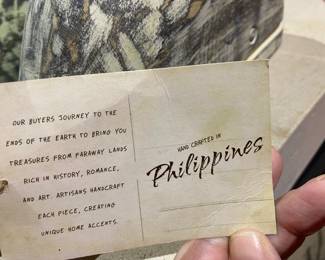 OUR BUYERS JOURNEY TO THE
ENDS OF THE EARTH TO BRING YOU
TREASURES FROM FARAWAY LANDS
RICH IN HISTORY, ROMANCE,
AND ART. ARTISANS HANDCRAFT
EACH PIECE, CREATING
UNIQUE HOME ACCENTS.
HAND CRAFTED IN
Philippines